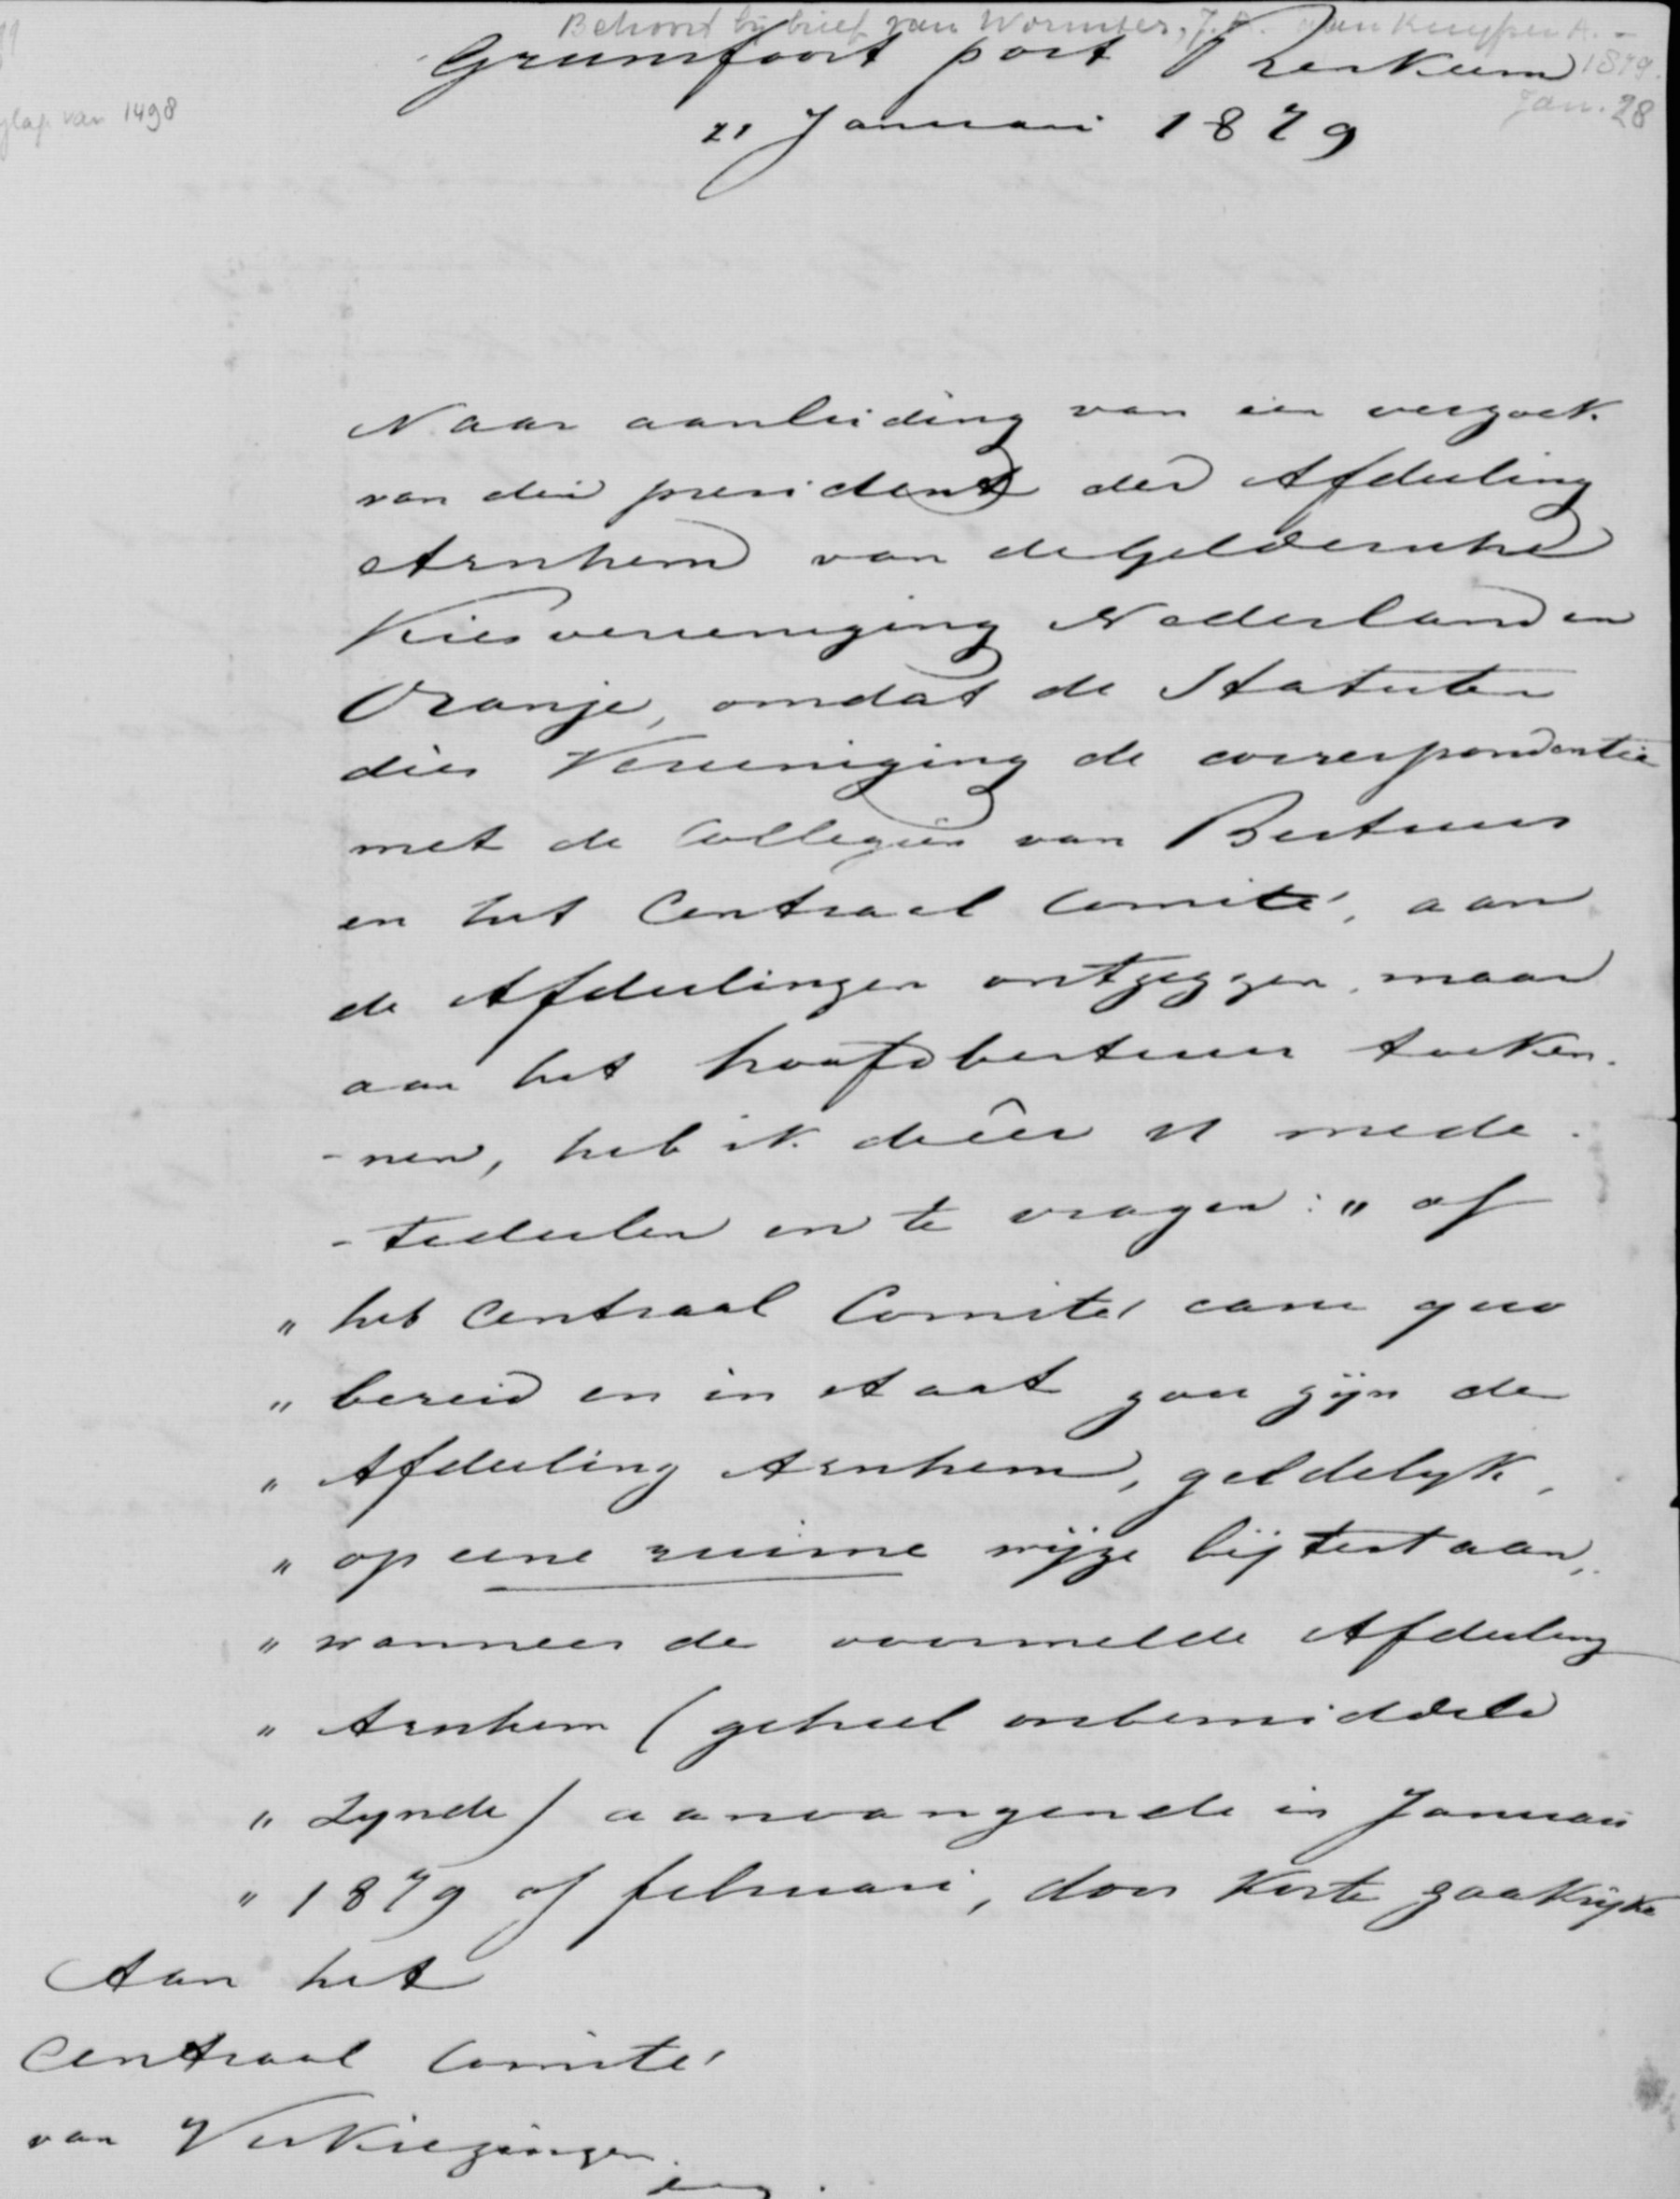 Behoort bij brief van Wormser, J.A. aan Kuyper A. -
1879.
Jan. 28
van 1498
Grunsfoort post Renkum
21 Januari 1879
Naar aanleiding van een verzoek
van den president der Afdeeling
Arnhem van de Geldersche
Kiesvereeniging Nederland en
Oranje, omdat de Statuten
dier Vereeniging de correspondentie
met de Collegien van Bestuur
en het Centraal Comité, aan
de Afdeelingen ontzeggen, maar
aan het hoofdbestuur toeken-
-nen, heb ik de eer U mede-
-tedeelen en te vragen: " of
" het Centraal Comité casu quo
" bereid en in staat zou zijn de
" Afdeeling Arnhem, geldelyk,
" op eene ruime wijze bijtestaan,
" wanneer de voormelde Afdeeling
" Arnhem (geheel onbemiddeld
" Zynde) aanvangende in Januari
" 1879 of februari, door korte zaakrijke
Aan het
Centraal Comité
van Verkiezingen